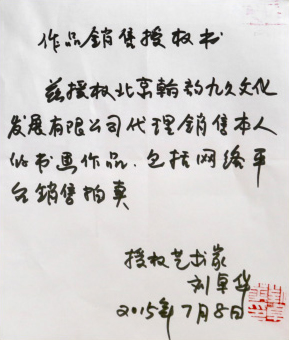 作品銷售授权书
兹授权北京翰韵九久文化
发展有限公司代理銷售本人
的书画作品.包括网络平
台銷售拍卖
授权艺术家
刘卓华
2015年7月8日